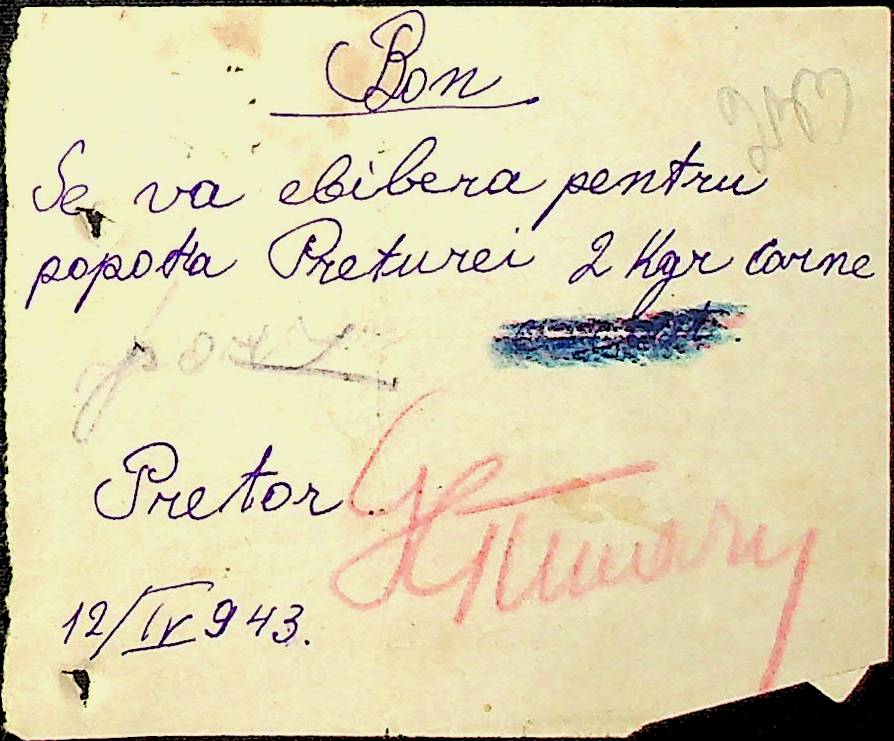 Bon
Se va elibera pentru
popota Preturei 2 Kgr carne
Pretor
12/IV 943.